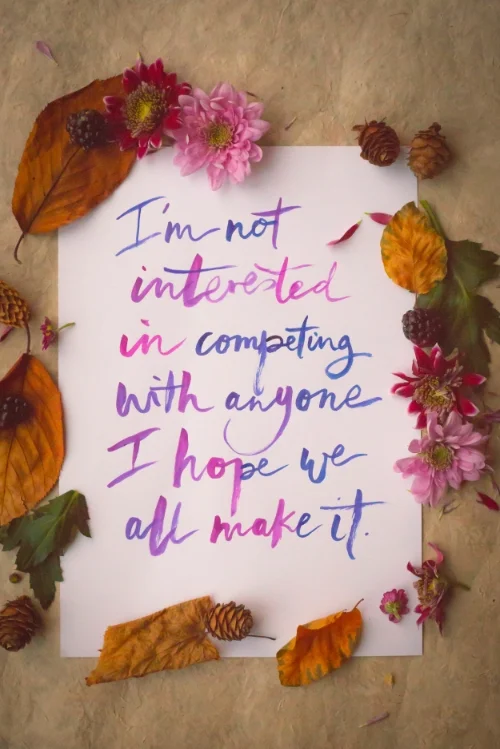 I'm not
interested
in competing
with anyone
I hope we
all make it.